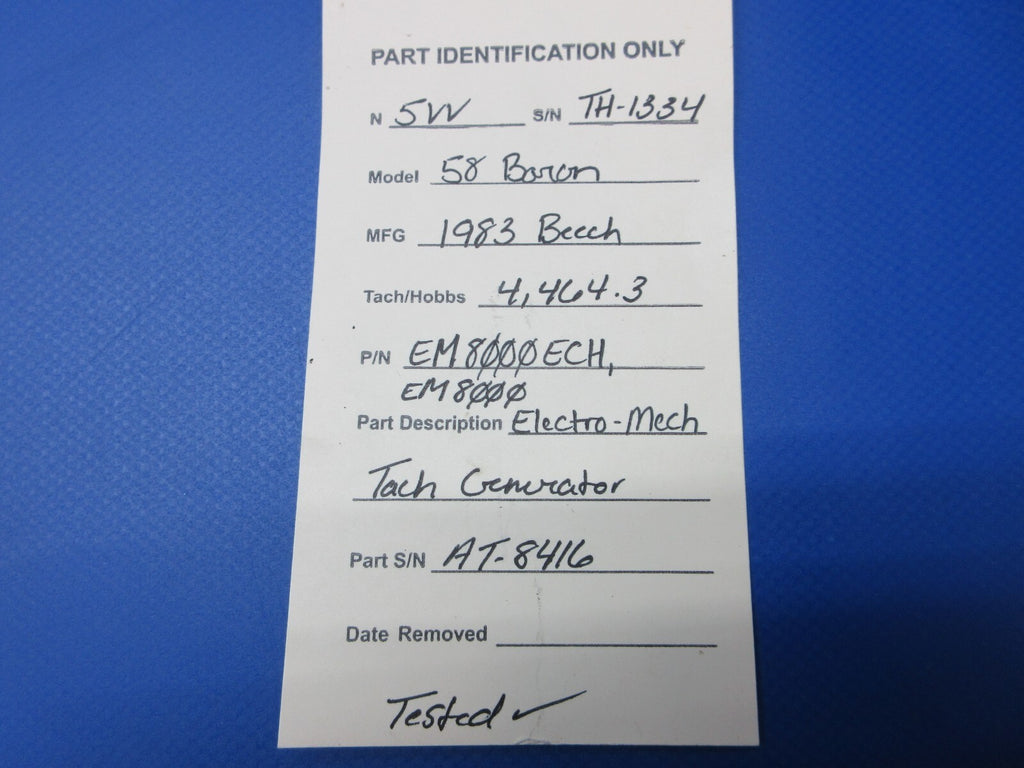 PART IDENTIFICATION ONLY
N 5W S/N TH-1334
Model 58 Baron
MFG 1983 Beech
Tach/Hobbs 4,464.3
P/N EM8000ECH,
EM8000
Part Description Electro-Mech
Tach Generator
Part S/N AT-8416
Date Removed
Tested ✓